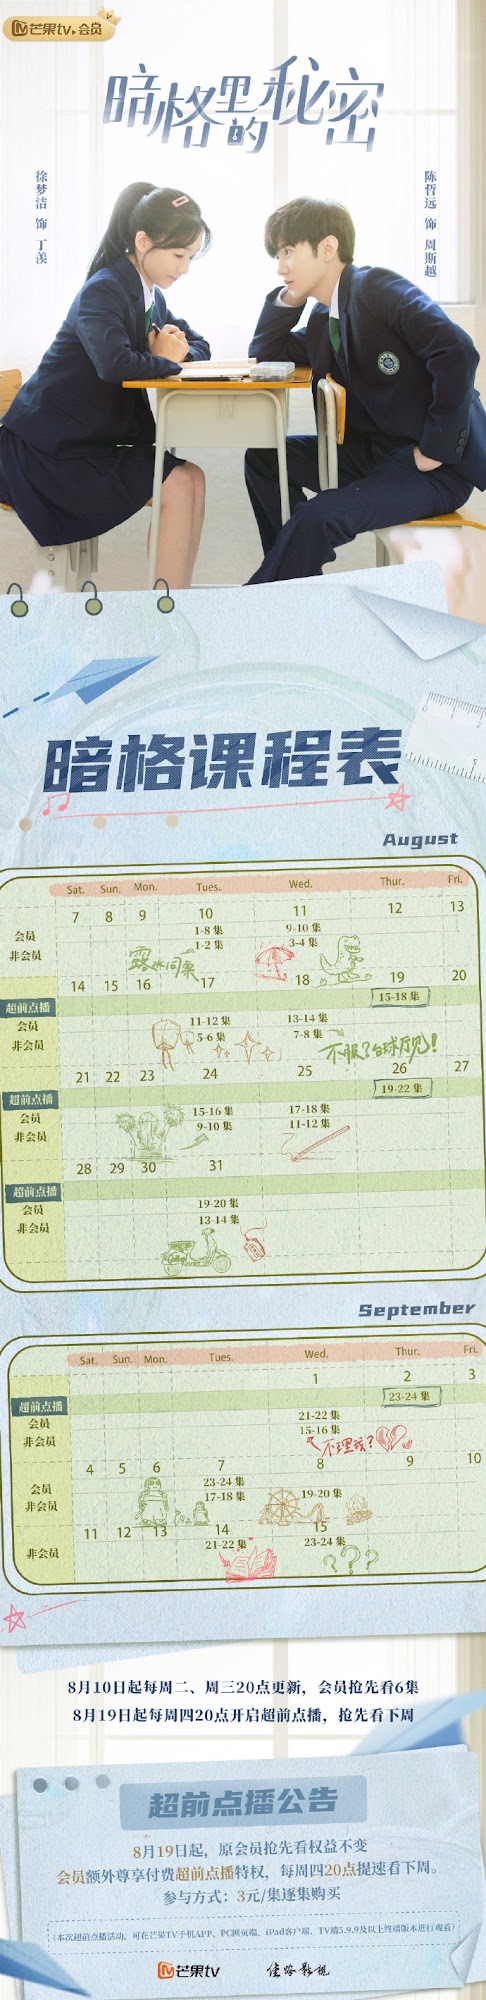 芒果tv·会员
暗格里的秘密
徐梦洁 饰 丁羡
陈哲远 饰 周斯越
暗格课程表
August
Sat. Sun. Mon. Tues. Wed. Thur. Fri.
7 8 9 10 11 12 13
会员 1-8 集 9-10 集
非会员 1-2 集 3-4 集
露水同票
14 15 16 17 18 19 20
超前点播 15-18 集
会员 11-12 集 13-14 集
非会员 5-6 集 7-8 集
不服?台球厅见!
21 22 23 24 25 26 27
超前点播 19-22 集
会员 15-16 集 17-18 集
非会员 9-10 集 11-12 集
28 29 30 31
超前点播
会员 19-20 集
非会员 13-14 集
September
Sat. Sun. Mon. Tues. Wed. Thur. Fri.
1 2 3
超前点播 23-24 集
会员 21-22 集
非会员 15-16 集
不理我?
4 5 6 7 8 9 10
会员 23-24 集
非会员 17-18 集 19-20 集
11 12 13 14 15
非会员 21-22 集 23-24 集
???
8月10日起每周二、周三20点更新，会员抢先看6集
8月19日起每周四20点开启超前点播，抢先看下周
超前点播公告
8月19日起，原会员抢先看权益不变
会员额外尊享付费超前点播特权，每周四20点提速看下周。
参与方式：3元/集逐集购买
（本次超前点播活动，可在芒果TV手机APP、PC网页端、iPad客户端、TV端5.9.9及以上终端版本进行观看）
芒果tv 佳路影视